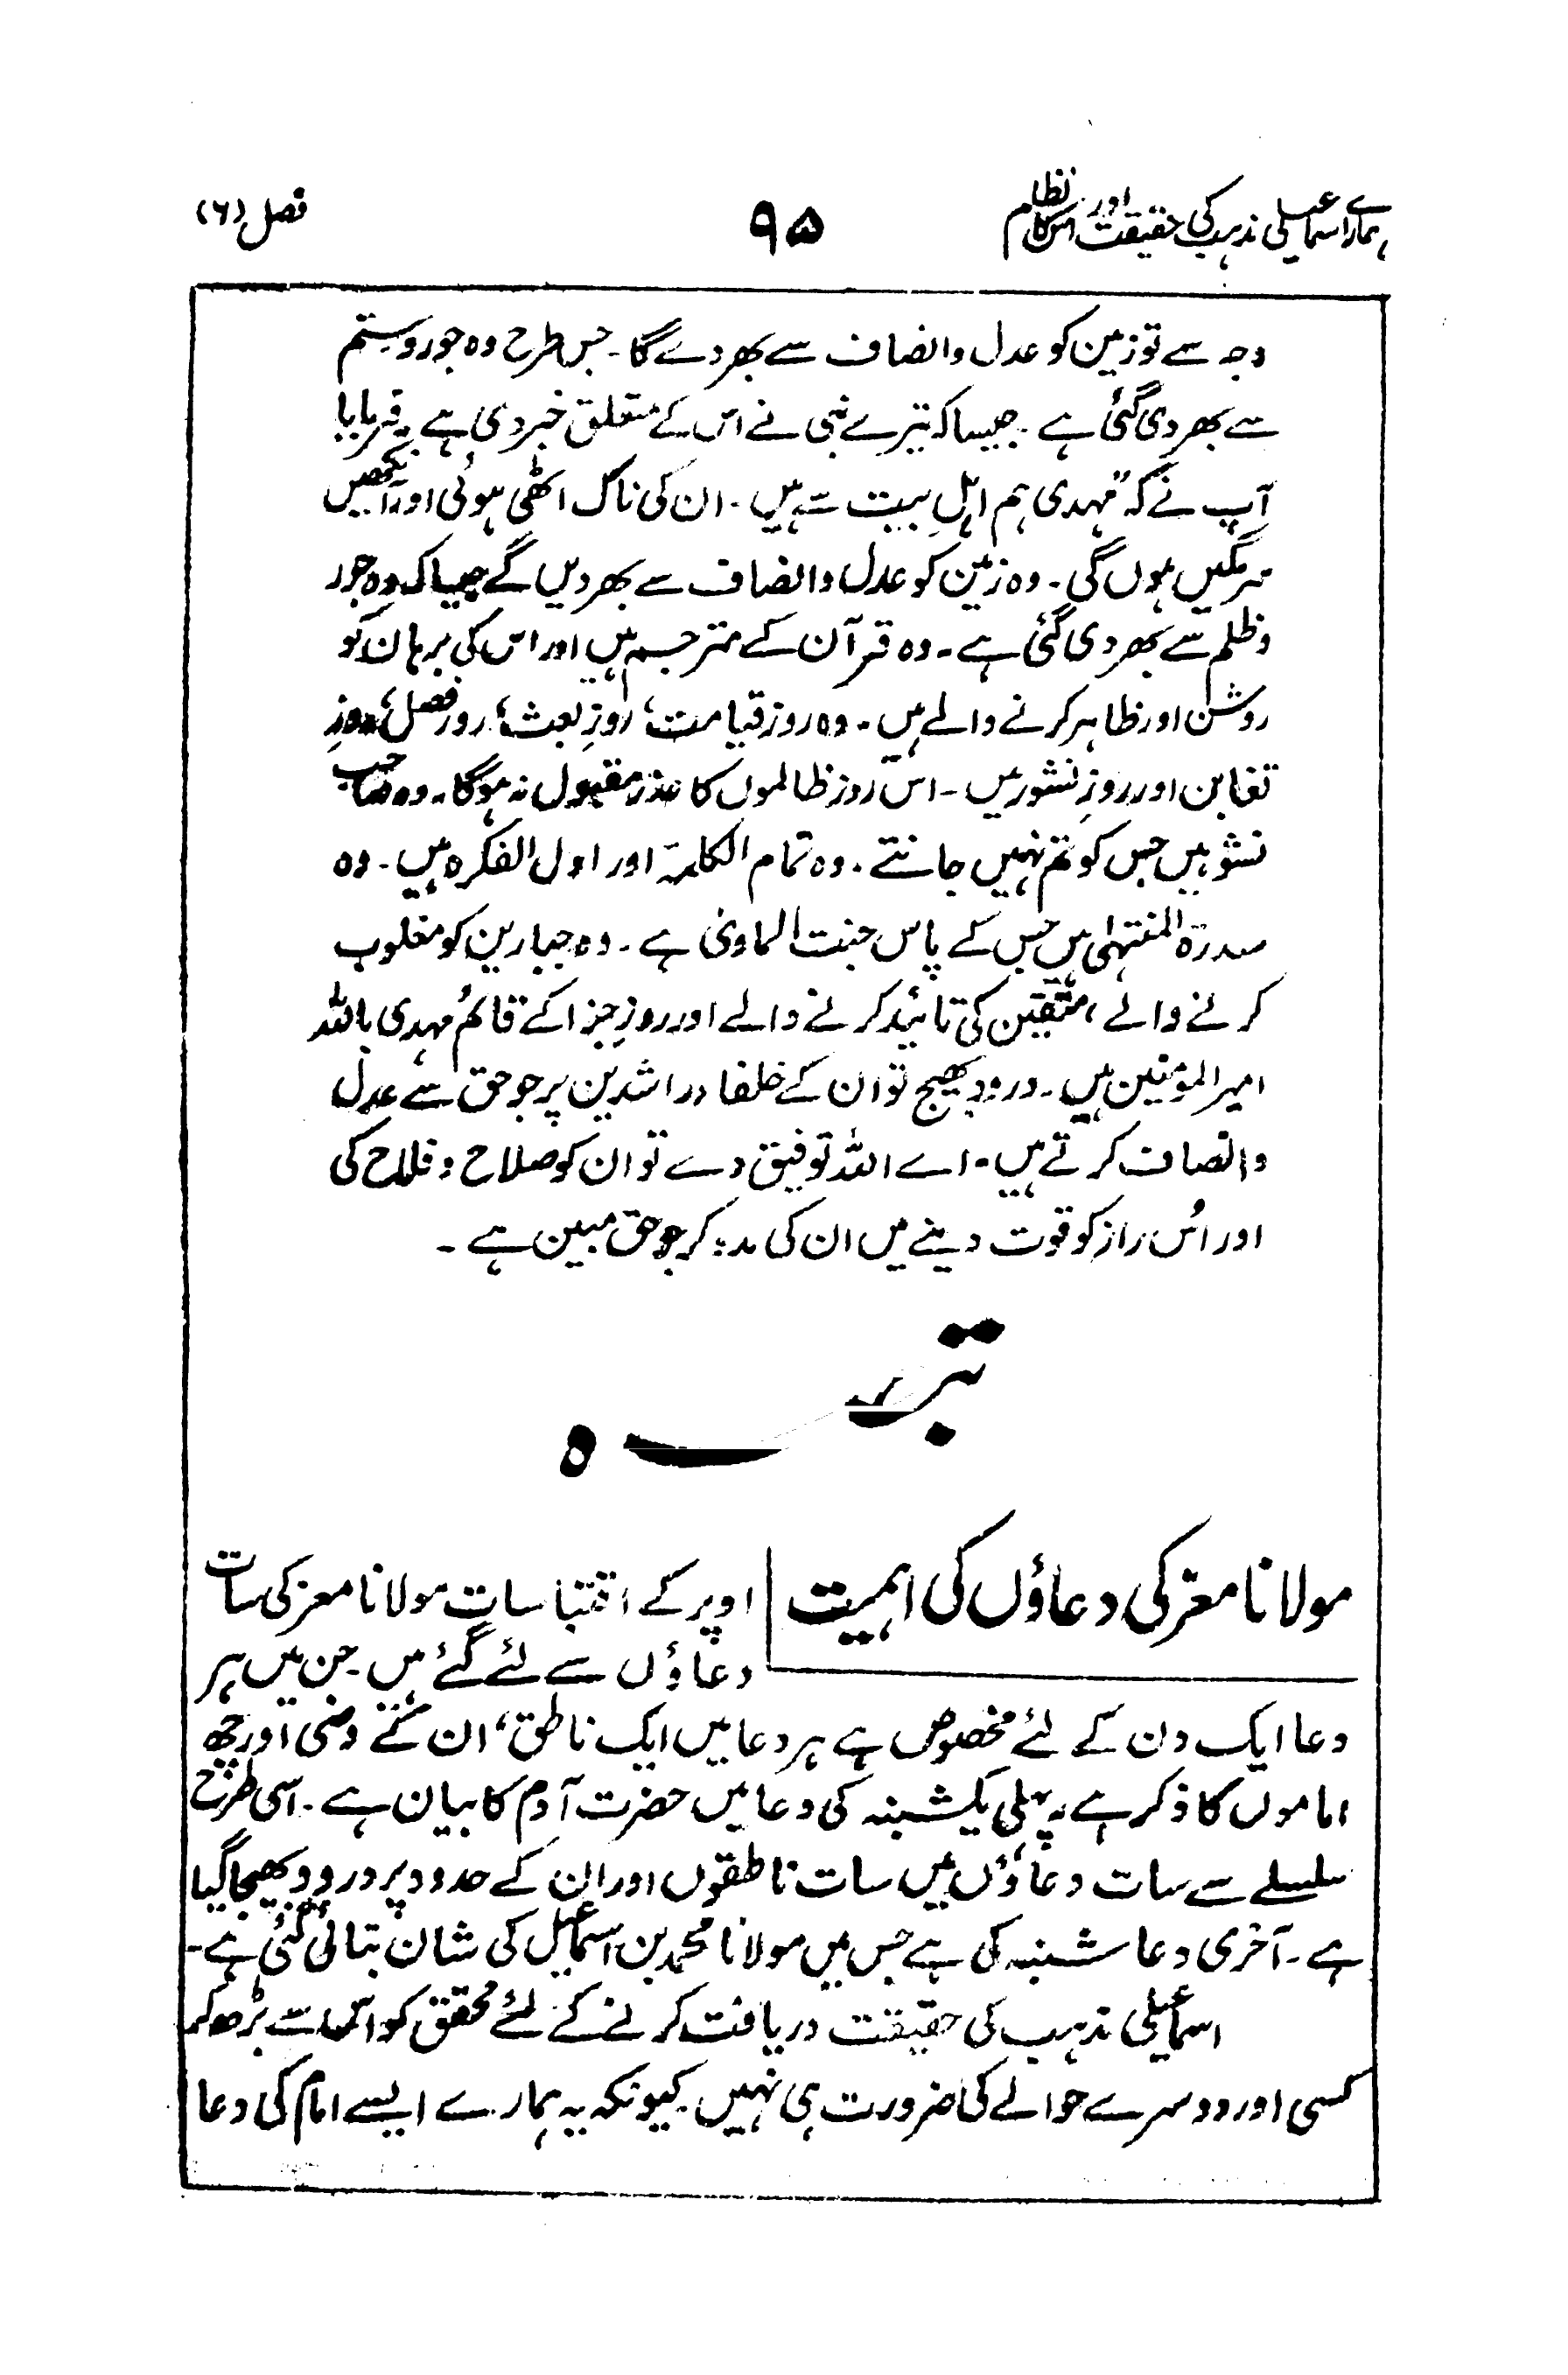 ہمارے اسماعیلی مذہب کی حقیقت اور اس کا نظام
۹۵
فصل (۶)
وجہ سے تو زمین کو عدل و انصاف سے بھر دے گا۔ جس طرح وہ جور و ستم
سے بھر دی گئی ہے۔ جیسا کہ تیرے نبی نے اس کے متعلق خبر دی ہے۔ فرمایا
آپ نے کہ "مہدی ہم اہلِ بیت سے ہیں۔ ان کی ناک اٹھی ہوئی اور آنکھیں
سرمگیں ہوں گی۔ وہ زمین کو عدل و انصاف سے بھر دیں گے جیسا کہ وہ جور
و ظلم سے بھر دی گئی ہے۔ وہ قرآن کے مترجم ہیں اور اس کی برہان کو
روشن اور ظاہر کرنے والے ہیں۔ وہ روز قیامت، روزِ بعث، روز فصل، روزِ
تغابن اور روزِ نشور ہیں۔ اس روز ظالموں کا عذر مقبول نہ ہوگا۔ وہ صاحب
نشو ہیں جس کو تم نہیں جانتے۔ وہ تمام الکلمۃ اور اول الفکرہ ہیں۔ وہ
سدرۃ المنتہیٰ ہیں جس کے پاس جنت الماویٰ ہے۔ وہ جبارین کو مغلوب
کرنے والے، متقین کی تائید کرنے والے اور روزِ جزا کے قائم مہدی باللہ
امیر المومنین ہیں۔ درود بھیج تو ان کے خلفاء راشدین پر جو حق سے عدل
و انصاف کرتے ہیں۔ اے اللہ توفیق دے تو ان کو صلاح و فلاح کی
اور اُس راز کو قوت دینے میں ان کی مدد کر جو حق مبین ہے۔
تبصرہ
مولانا معز کی دعاؤں کی اہمیت
اوپر کے اقتباسات مولانا معز کی سات
دعاؤں سے لئے گئے ہیں۔ جن میں ہر
دعا ایک دن کے لئے مخصوص ہے ہر دعا میں ایک ناطق، ان کے وصی اور چھ
اماموں کا ذکر ہے۔ پہلی یکشنبہ کی دعا میں حضرت آدم کا بیان ہے۔ اسی طرح
سلسلے سے سات دعاؤں میں سات ناطقوں اور ان کے حدود پر درود بھیجا گیا
ہے۔ آخری دعا شنبہ کی ہے جس میں مولانا محمد بن اسماعیل کی شان بتائی گئی ہے۔
اسماعیلی مذہب کی حقیقت دریافت کرنے کے لئے محقق کو اس سے بڑھ کر
کسی اور دوسرے حوالے کی ضرورت ہی نہیں۔ کیونکہ یہ ہمارے ایسے امام کی دعا